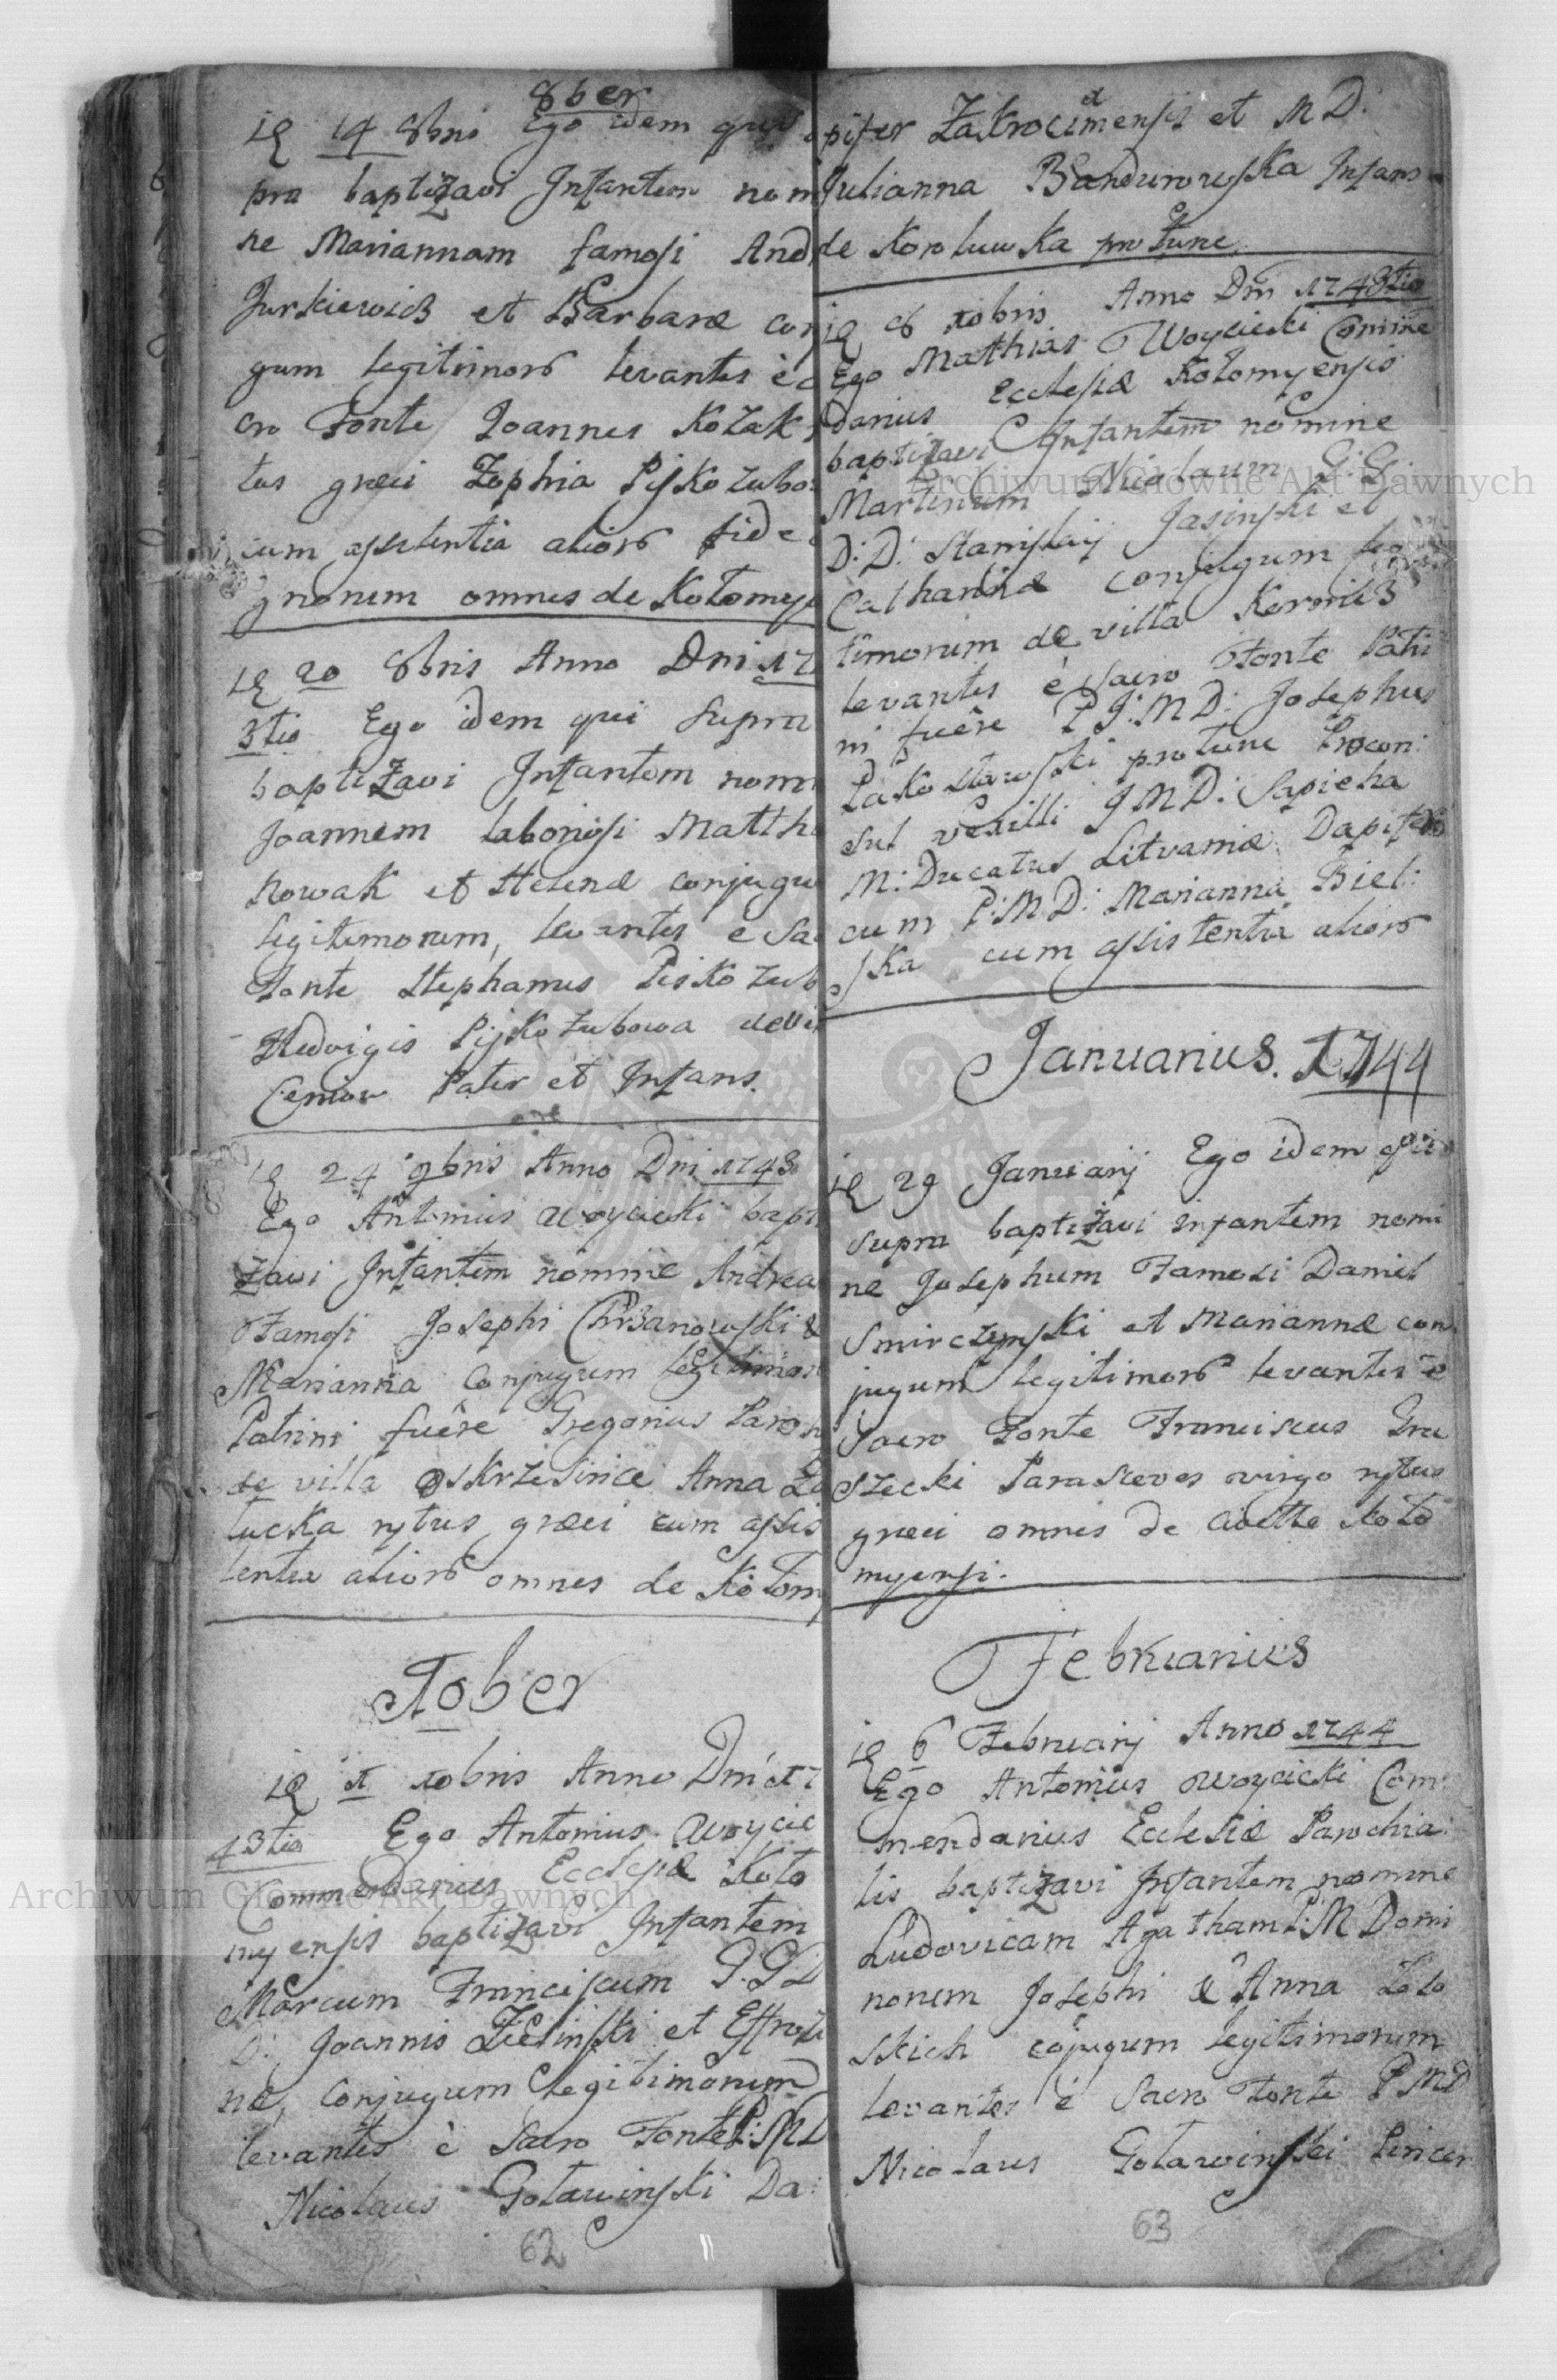 8ber
14 8bris Ego idem qui
pra baptizavi Infantem nomi
ne Mariannam famosi And
Jurkiewicz et Barbaræ con
gum legitimor levantes è
cro Fonte Joannes Kozak
tus græci Zophia Piskozubo
cum assistentia alior fide
gnorum omnes de Kołomyja
20 8bris Anno Dni 17
3tio Ego idem qui Supra
baptizavi Infantem nom
Joannem laboriosi Matth
Nowak et Helenæ conjugu
legitimorum, levantes e Sa
Fonte Stephanus Piskozub
Hedvigis Piskozubowa de vi
Ceniow Pater et Infans.
24 9bris Anno Dni 1743
Ego Antonius Woycicki bapt
zavi Infantem nomine Andrea
Famosi Josephi Chrzanowski &
Marianna Conjugum legitimor
Patrini fuêre Gregorius Paroh
de villa Oskrzesince Anna Za
łucka rytus græci cum assis
tentia alior omnes de Kołom
Xober
X xbris Anno Dni 17
43tio Ego Antonius Woycic
Commendarius Ecclesiæ Koło
myensis baptizavi Infantem
Marcum Franciscum G. G D
D: Joannis Zielinski et Effrozi
næ, Conjugum legitimorum
levantes è Sacro Fonte P: M D
Nicolaus Goławinski Da:
62
pifer Zakrocimensis et M D:
Julianna Bandurowska Infans
de Koroluwka pro tunc
8 xbris Anno Dni 1743tio
Ego Mathias Woycicki Comme
darius Ecclesiæ Kołomyensis
baptizavi Infantem nomine
Martinum Nicolaum G: G:
D: D: Stanislaij Jasinski et
Catharinæ conjugum legi
timorum de villa Kornicz
levantes è Sacro Fonte Patri
ni fuêre P J: M D: Josephus
Paskostawski pro tunc Procon:
sul vexilli J M D: Sapieha
M: Ducatus Litvaniæ Dapiferi
cum P: M D: Marianna Biel:
ska cum assistentia alior
Januarius. 1744
29 Januarij Ego idem qui
supra baptizavi infantem nomi
ne Josephum Famosi Daniel
Smirczynski et Mariannæ con
jugum legitimor levantes è
Sacro Fonte Franciscus Gru
szecki Parasceves virgo rytus
græci omnes de Civitte Koło
myensi.
Februarius
6 Februarij Anno 1744
Ego Antonius Woycicki Com:
mendarius Ecclesiæ Parochia:
lis baptizavi Infantem nomine
Ludovicam Agatham P: M Domi
norum Josephi & Anna Zoło
skich cojugum legitimorum
levantes è Sacro Fonte P M D
Nicolaus Goławinski Pincer
63
Archiwum Główne Akt Dawnych
Archiwum Główne Akt Dawnych